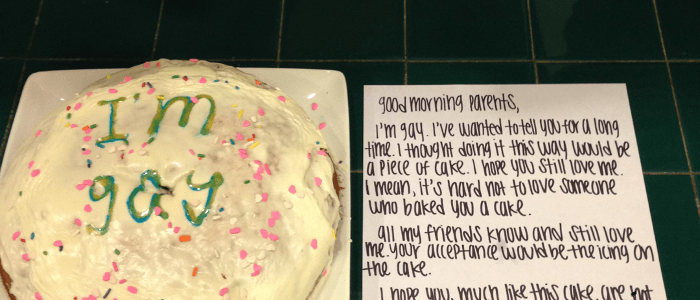 I'm
gay
good morning parents,
I'm gay. I've wanted to tell you for a long
time. I thought doing it this way would be
a piece of cake. I hope you still love me.
I mean, it's hard not to love someone
who baked you a cake.
all my friends know and still love
me. your acceptance would be the icing on
the cake.
I hope you, much like this cake, are not